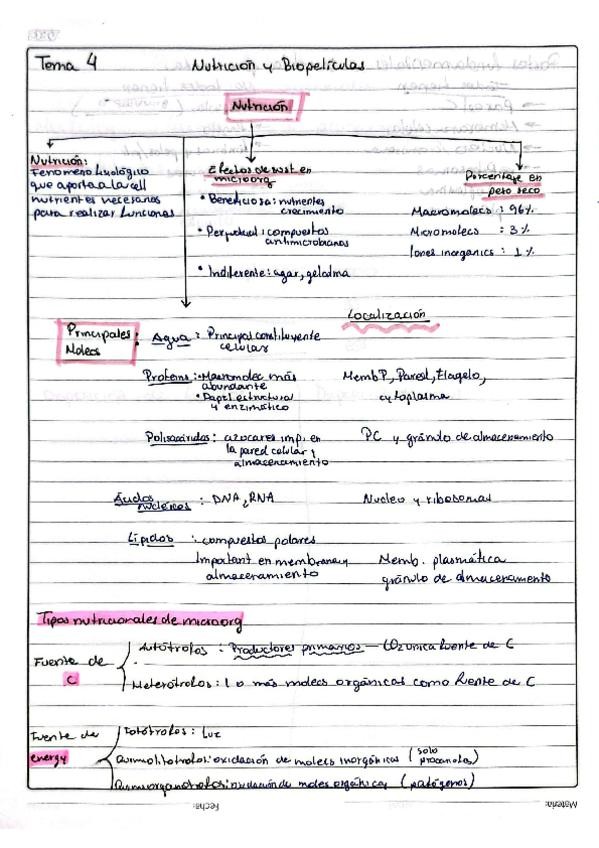 Tema 4 Nutrición y Biopelículas
Nutrición
Nutrición:
Fenómeno fisiológico
que aporta a la cell
nutrientes necesarios
para realizar funciones
Efectos de sust en
microorg
• Beneficiosa: nutrientes
crecimiento
• Perjudicial: compuestos
antimicrobianos
• Indiferente: agar, gelatina
Porcentaje en
peso seco
Macromolecs : 96%
Micromolecs : 3%
Iones inorganics : 1%
Principales
Molecs :
Localización
Agua : Principal constituyente
celular
Proteins : • Macromolec más
abundante
• Papel estructural
y enzimático
Memb P, Pared, Flagelo,
cytoplasma
Polisacáridos: azocares imp. en
la pared celular y
almacenamiento
PC y gránulo de almacenamiento
Ácidos
nucleicos : DNA, RNA
Nucleo y ribosomas
Lípidos : compuestos polares
Important en membrana y
almacenamiento
Memb. plasmática
gránulo de almacenamiento
Tipos nutricionales de microorg
Fuente de
C
Autótrofos : Productores primarios — CO2 unica fuente de C
Heterótrofos : 1 o más molecs orgánicas como fuente de C
Fuente de
energy
Fotótrofos : Luz
Quimiolitotrofos: oxidación de molecs inorgánicas (solo
procariotas)
Quimiorganotrofos: oxidación de molecs orgánicas (patógenos)
Fecha:
Materia: